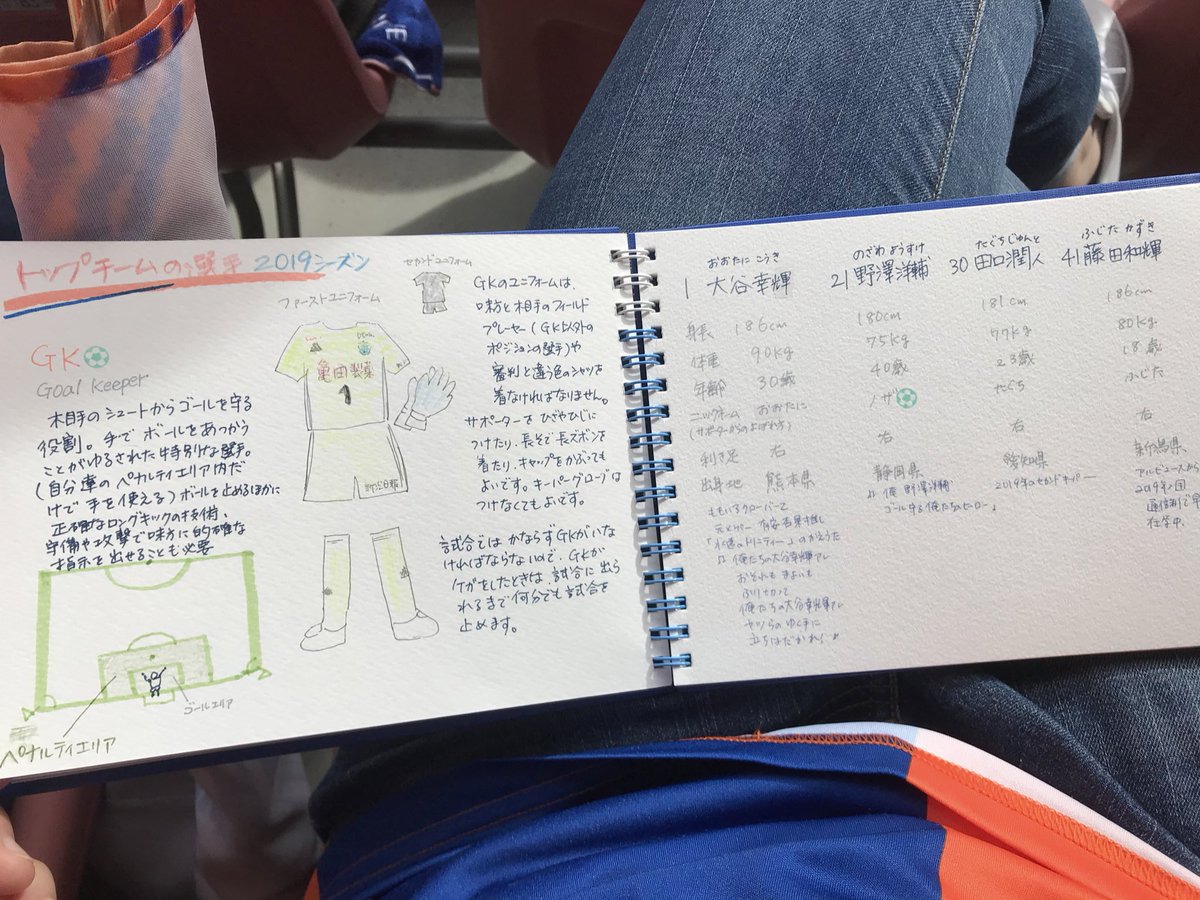 トップチームの選手 2019シーズン
GK
Goal Keeper
相手のシュートからゴールを守る
役割。手でボールをあつかう
ことがゆるされた特別な選手。
(自分達のペナルティエリア内だ
けで手を使える)ボールを止めるほかに
正確なロングキックの技術、
守備や攻撃で味方に的確な
指示を出せることも必要
ペナルティエリア
ゴールエリア
ファーストユニフォーム
セカンドユニフォーム
亀田製菓
1
GKのユニフォームは、
味方と相手のフィールド
プレーヤー(GK以外の
ポジションの選手)や
審判と違う色のシャツを
着なければなりません。
サポーターをひざやひじに
つけたり、長そで長ズボンを
着たり、キャップをかぶっても
よいです。キーパーグローブは
つけなくてもよいです。
試合ではかならずGKがいな
ければならないので、GKが
ケガをしたときは、試合に出ら
れるまで何分でも試合を
止めます。
おおたに こうき
1 大谷幸輝
身長 186cm
体重 90kg
年齢 30歳
ニックネーム おおたに
(サポーターからのよばれ方)
利き足 右
出身地 熊本県
ももいろクローバーZ
俺たちの大谷幸輝アレ
おそれも まよいも
ふりきって
俺たちの大谷幸輝アレ
ヤツらのゆく手に
立ちはだかれ!♪
のざわ ようすけ
21 野澤洋輔
180cm
75kg
40歳
ノザ
右
静岡県
♫ 俺 野澤洋輔
ゴール守る俺たちのヒーロー♪
たぐちじゅんと
30 田口潤人
181cm
77kg
23歳
たぐち
右
愛知県
2019年のセカンドキーパー
ふじた かずき
41 藤田和輝
186cm
80kg
18歳
ふじた
右
新潟県
2019年
在学中。